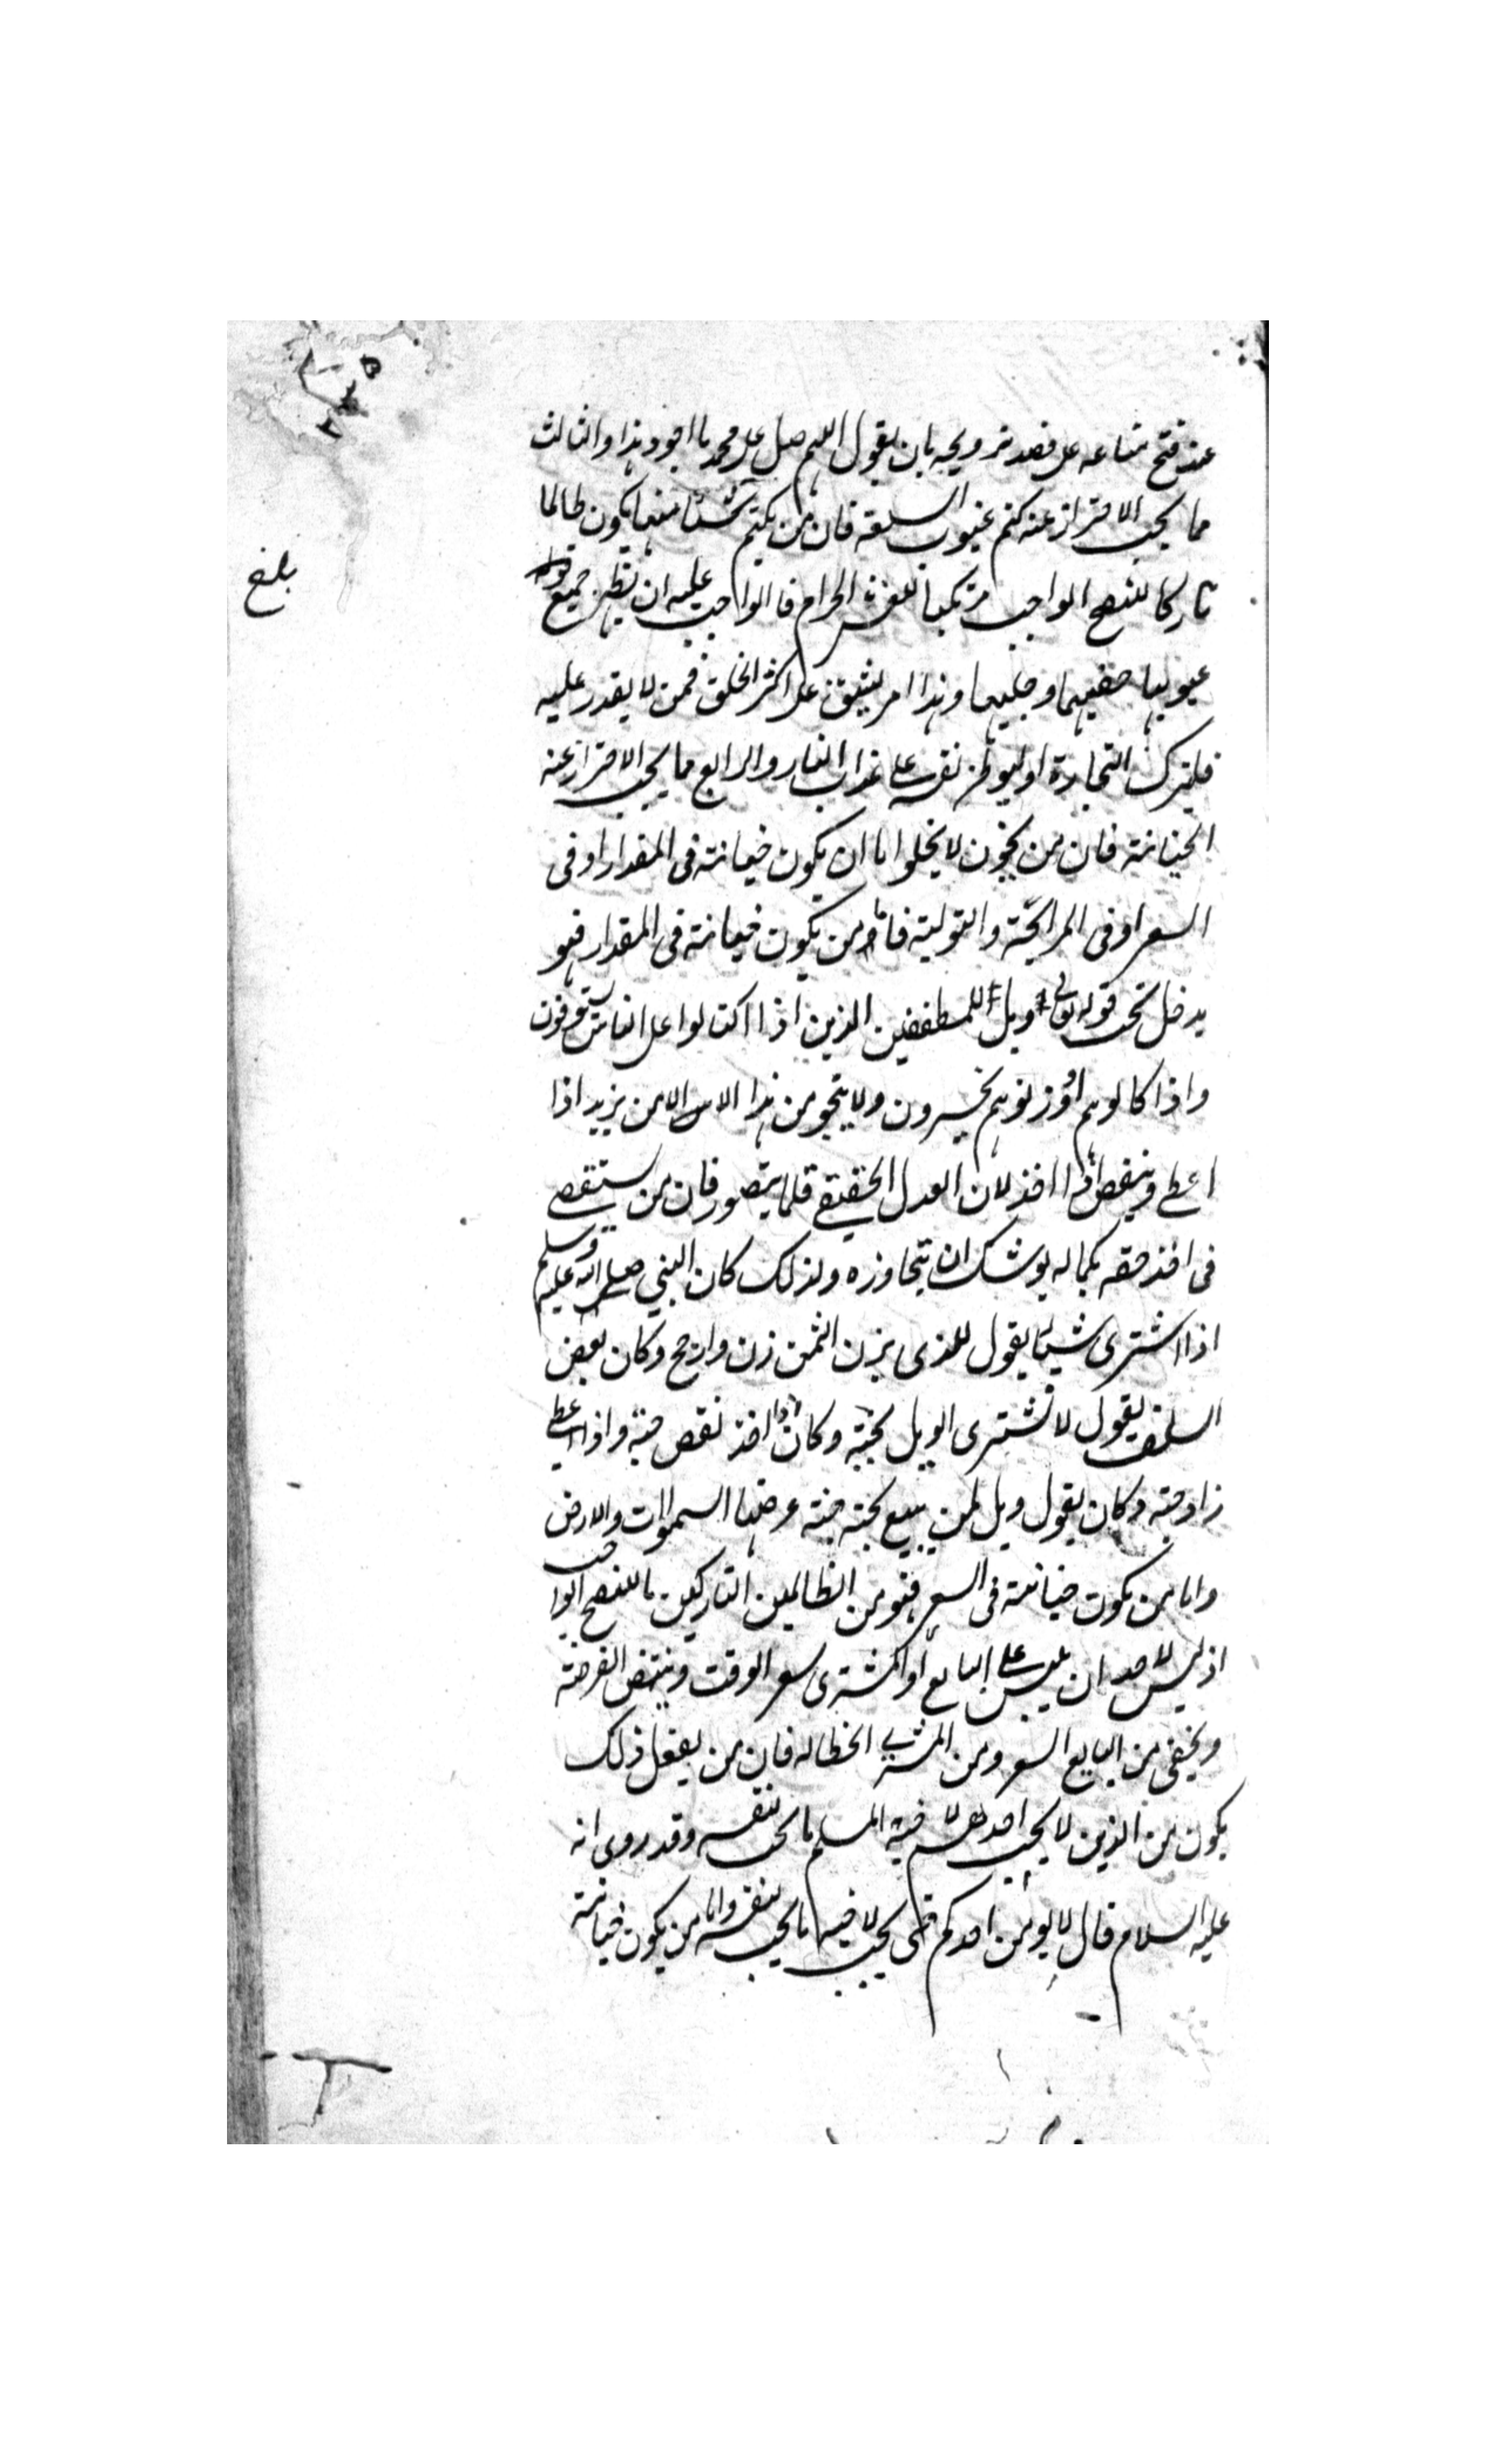 عند فتح متاعه على قصد ترويجه بان يقول اللهم صل على محمد ما اجود هذا والثالث
مما يجب الاحتراز عنه كتم عيوب السلعة فان من يكتم شيئا منها يكون ظالما
تاركا للنصح الواجب مرتكبا للغش الحرام فالواجب عليه ان يظهر جميع
بلغ
عيوبها خفيها وجليها وهذا امر يشق على اكثر الخلق فمن لا يقدر عليه
فليترك التجارة او ليوطن نفسه على عذاب النار والرابع مما يجب الاحتراز عنه
الخيانة فان من يخون لا يخلوا اما ان يكون خيانته فى المقدار او فى
السعر او فى المرابحة والتولية فاما من يكون خيانته فى المقدار فهو
يدخل تحت قوله تعالى ويل للمطففين الذين اذا اكتالوا على الناس يستوفون
واذا كالوهم او وزنوهم يخسرون ولا ينجو من هذا الا من يزيد اذا
اعطى وينقص اذا اخذ لان العدل الحقيقى قلما يتصور فان من يستقصى
فى اخذ حقه بكماله يوشك ان يتجاوزه ولذلك كان النبي صلى الله عليه وسلم
اذا اشترى شيئا يقول للذى يزن الثمن زن وارجح وكان بعض
السلف يقول لا نشترى الويل بحبة وكان اذا اخذ نقص حبة واذا اعطى
زاد حبة وكان يقول ويل لمن يبيع بحبة جنة عرضها السموات والارض
واما من يكون خيانته فى السعر فهو من الظالمين التاركين للنصح الواجب
اذ ليس لاحد ان يلبس على البايع او المشترى سعر الوقت وينتهز الفرصة
ويخفى من البايع السعر ومن المشترى انحطاطه فان من يفعل ذلك
يكون من الذين لا يحب احدهم لاخيه المسلم ما يحب لنفسه وقد روى انه
عليه السلام قال لا يؤمن احدكم حتى يحب لاخيه ما يحب لنفسه واما من يكون خيانته